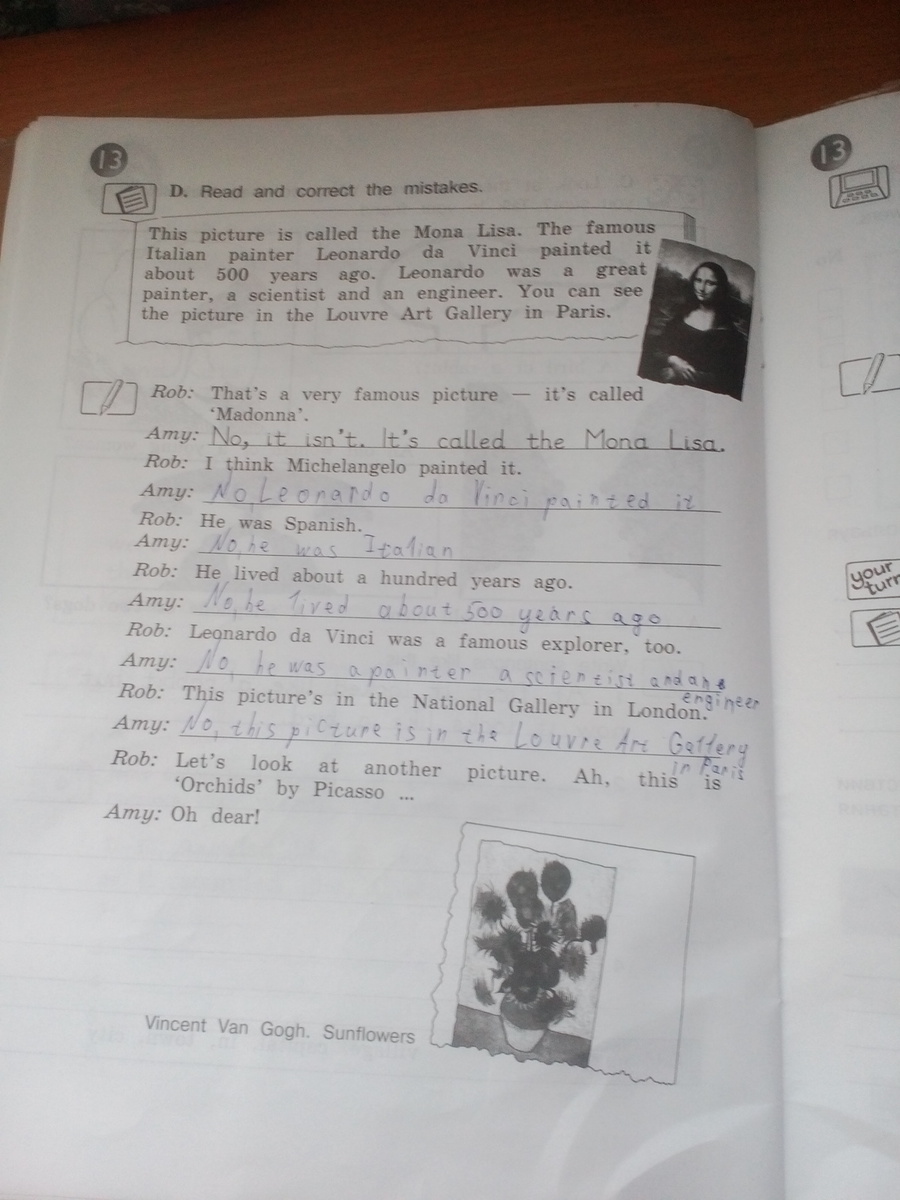 13
13
D. Read and correct the mistakes.
This picture is called the Mona Lisa. The famous
Italian painter Leonardo da Vinci painted it
about 500 years ago. Leonardo was a great
painter, a scientist and an engineer. You can see
the picture in the Louvre Art Gallery in Paris.
Rob: That's a very famous picture — it's called
'Madonna'.
Amy: No, it isn't. It's called the Mona Lisa.
Rob: I think Michelangelo painted it.
Amy: No, Leonardo da Vinci painted it
Rob: He was Spanish.
Amy: No, he was Italian
Rob: He lived about a hundred years ago.
Amy: No, he lived about 500 years ago
your
turn
Rob: Leonardo da Vinci was a famous explorer, too.
Amy: No, he was a painter a scientist and an
engineer
Rob: This picture's in the National Gallery in London.
Amy: No, this picture is in the Louvre Art Gallery
in Paris
Rob: Let's look at another picture. Ah, this is
'Orchids' by Picasso ...
Amy: Oh dear!
Vincent Van Gogh. Sunflowers